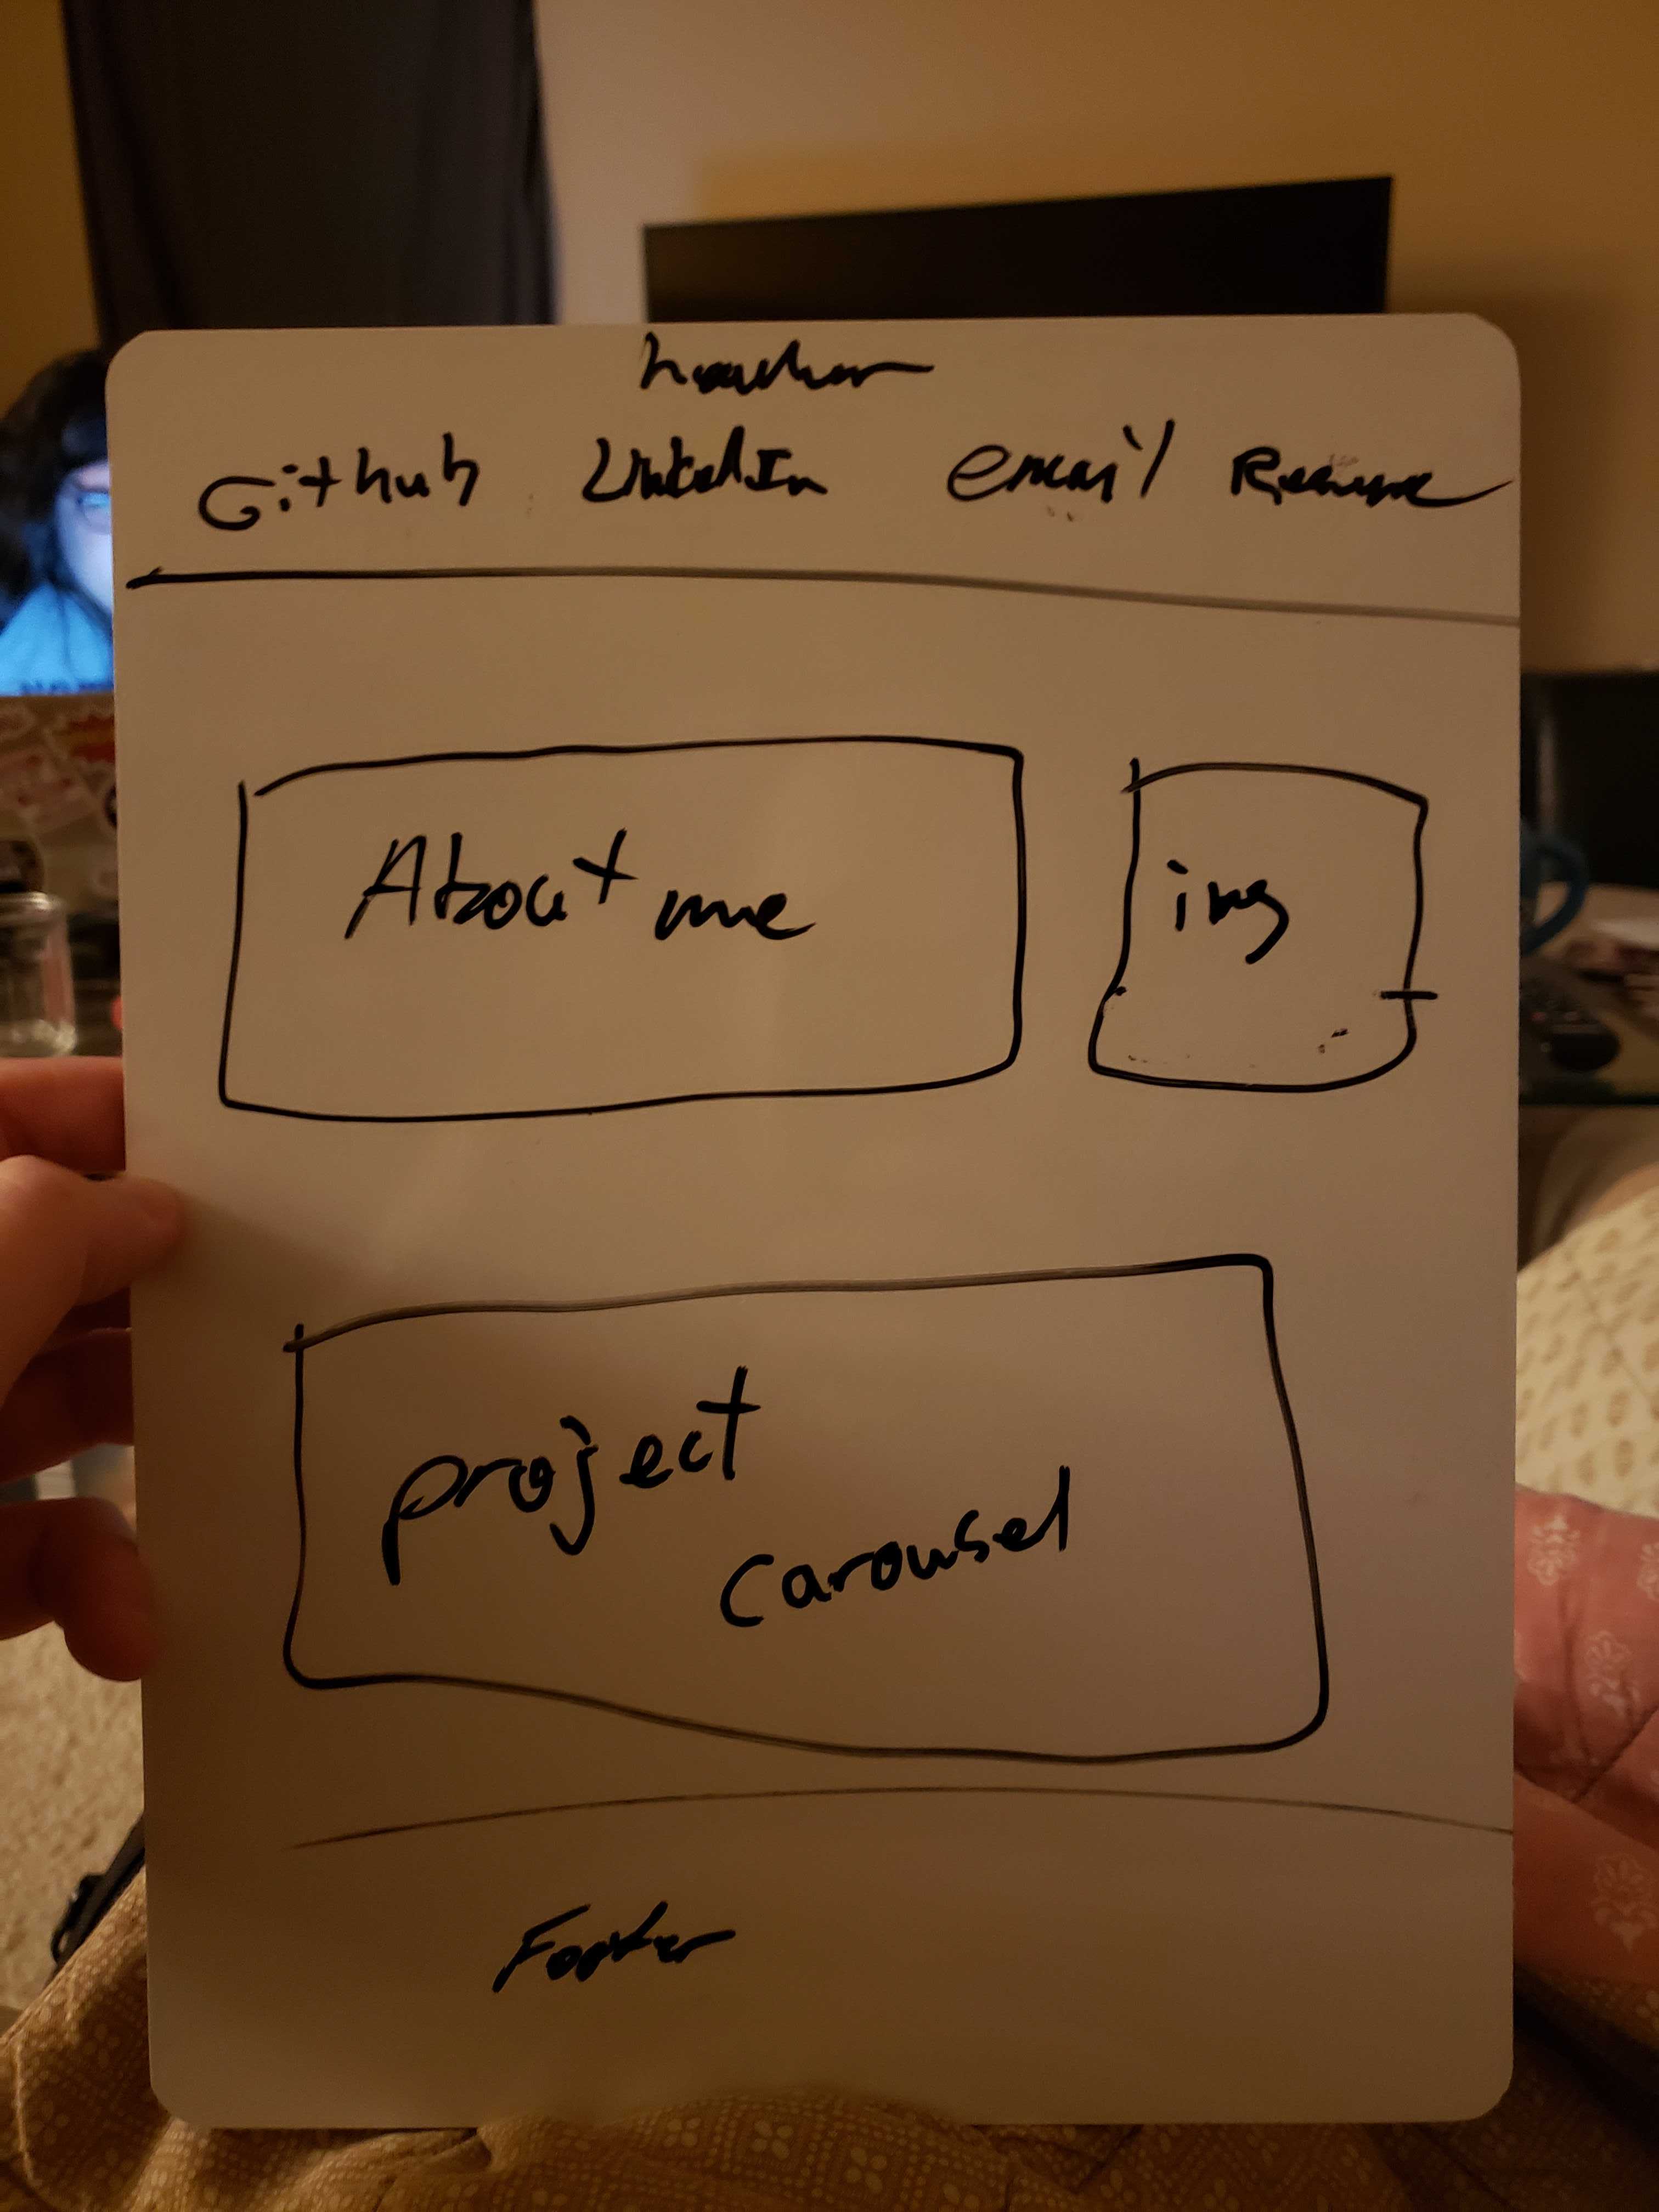 header
Github LinkedIn email Resume
About me
img
project
carousel
Footer